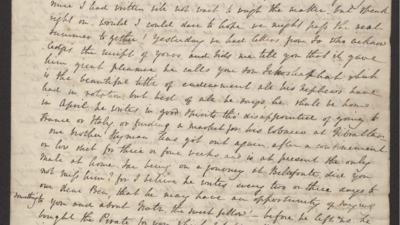 since I had written
right on. would I could dare to hope we might pass the next
summer together! Yesterday we had letters from
ledges the receipt of yours and bids me tell you that it gave
him great pleasure he calls you son Jehoshaphat which
is the beautiful title of endearment all his nephews have
had in rotation but best of all he says he shall be home
in April he writes in good spirits tho' disappointed of going to
France or Italy or finding a market for his tobacco at Gibraltar
our brother Hyman has got out again after a confinement
or low diet for three or four weeks and is at present the only
Male at home being on a journey at Bellefonte, did you
not miss him? for I believe he writes every two or three days to
our dear Ben, that he may have an opportunity of saying
something to you and about you the sweet fellow - before he left us he
bought the Pirate for you